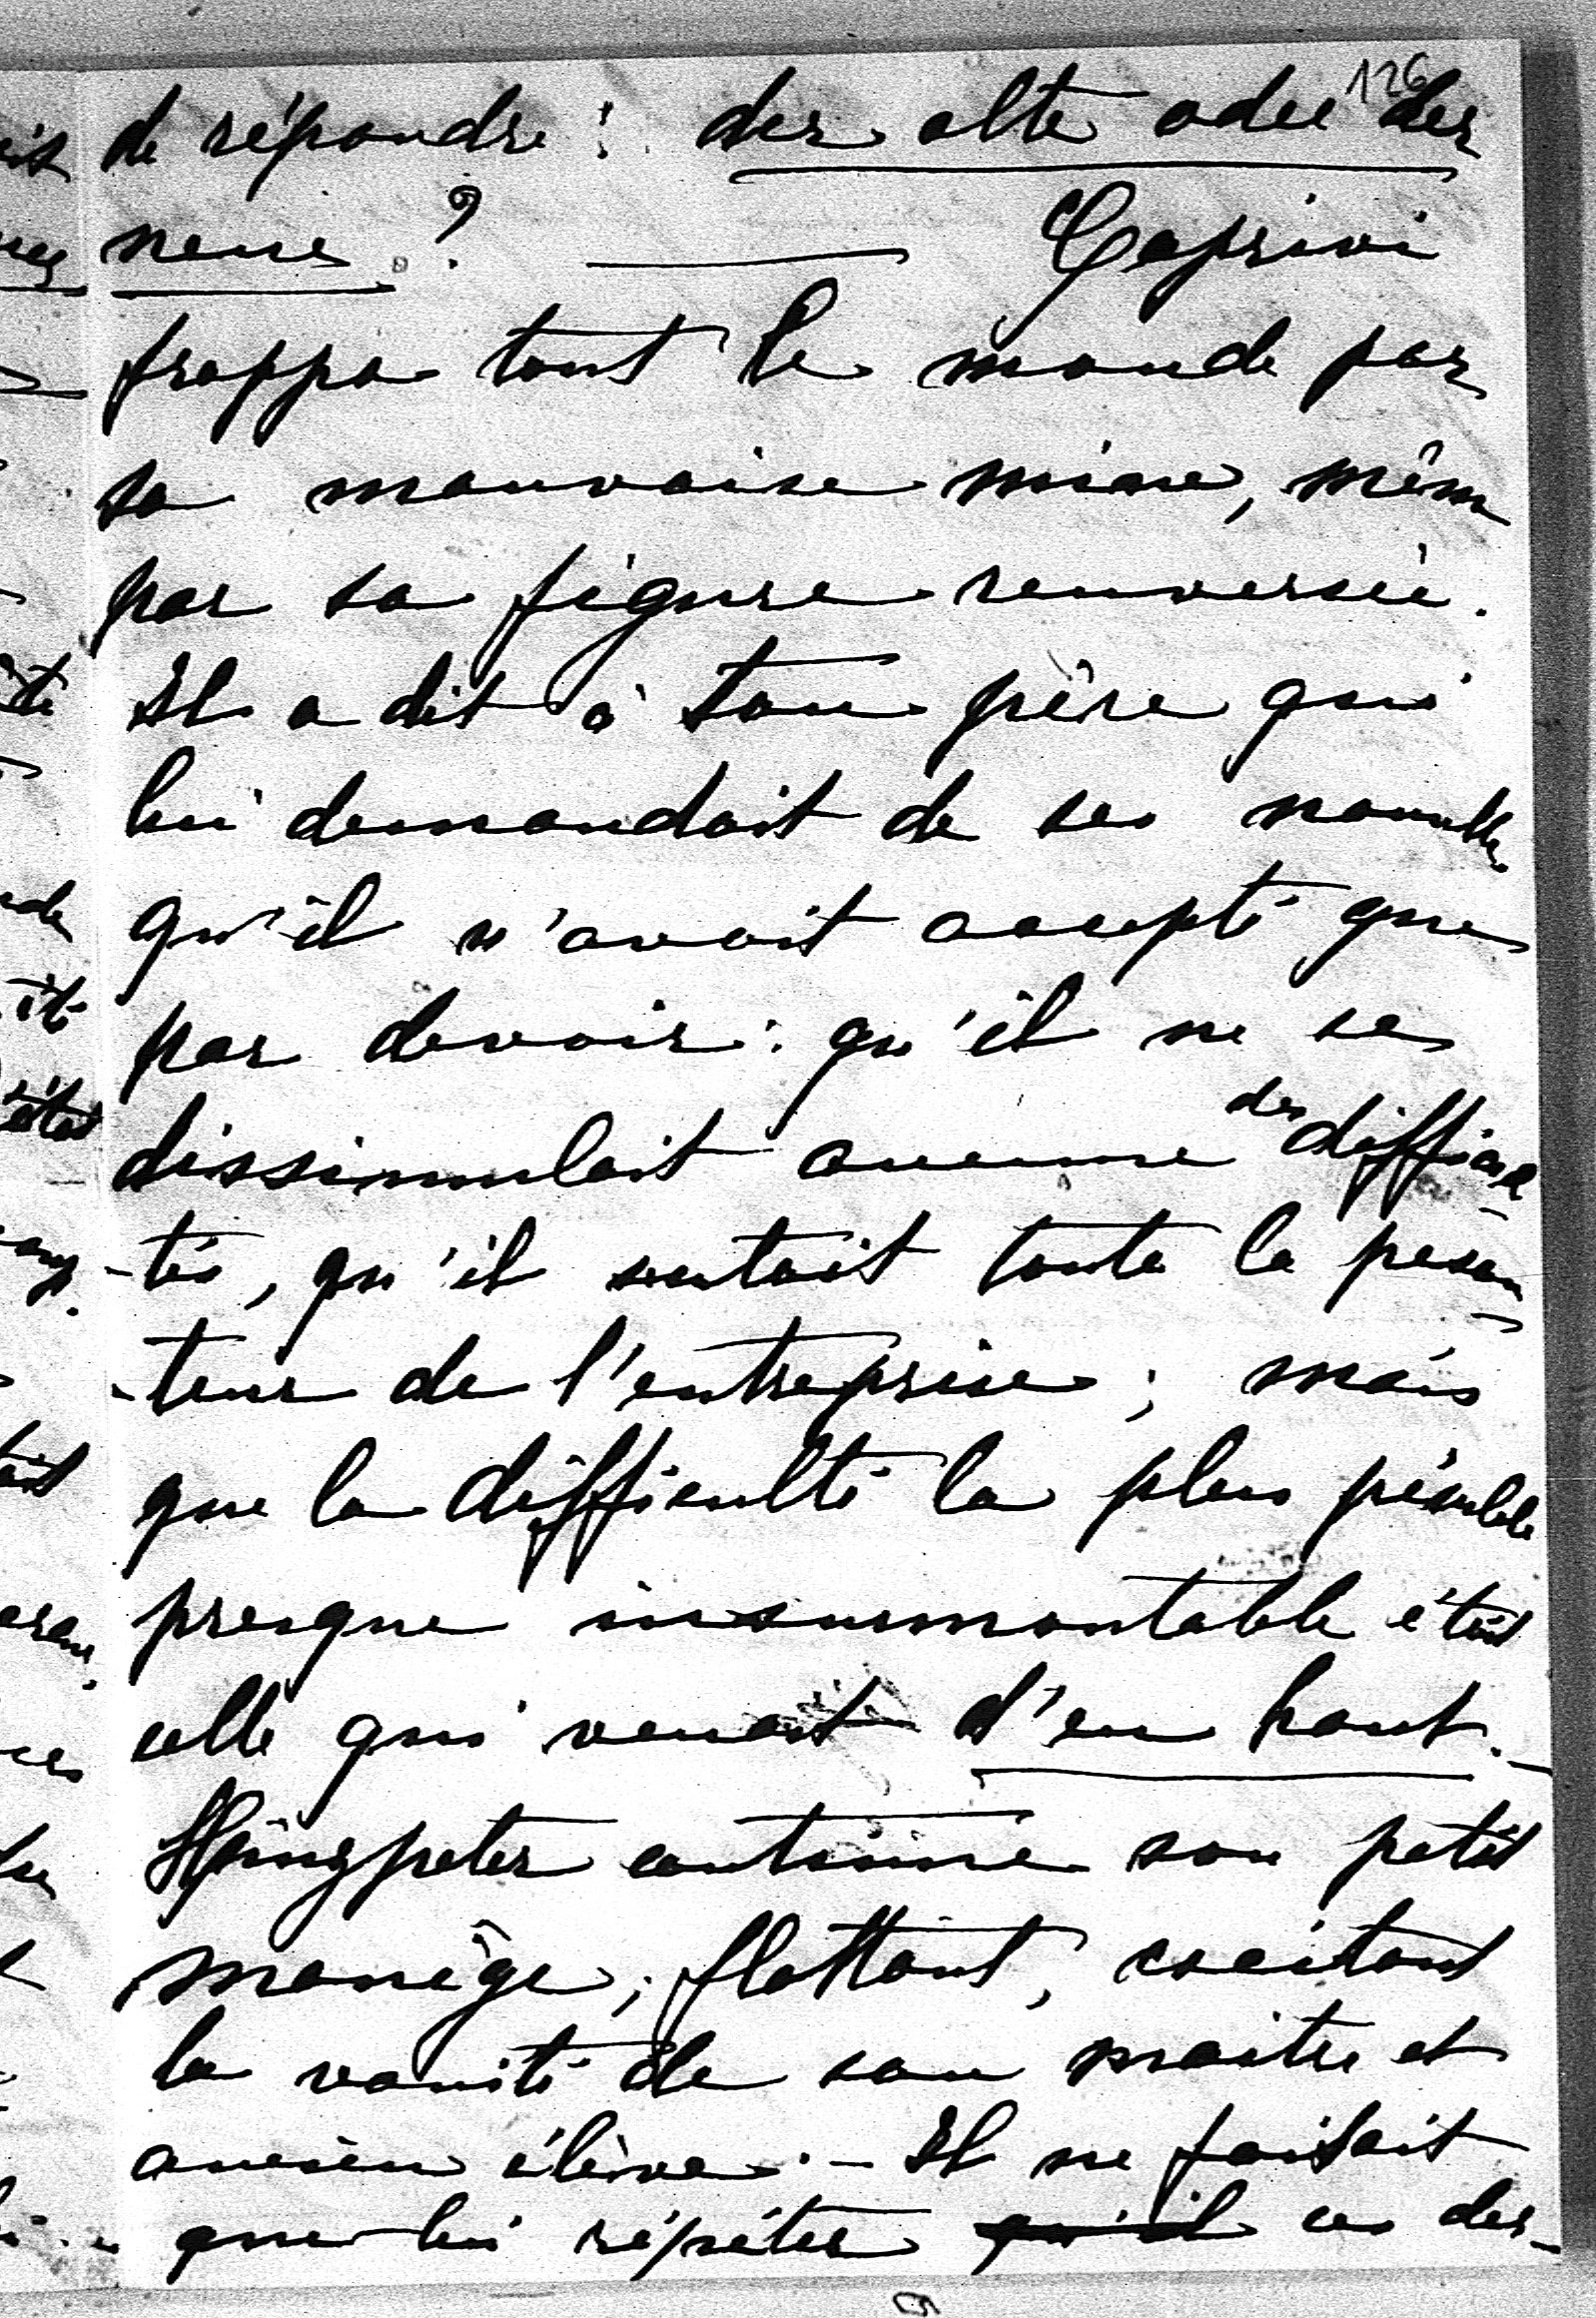 126
de répondre: der alte oder der
neue? — Caprivi
frappa tout le monde par
sa mauvaise mine, même
par sa figure renversée.
Il a dit à ton père qui
lui demandait de ses nouvelles
qu'il n'avait accepté que
par devoir: qu'il ne se
dissimulait aucune des difficul-
-tés, qu'il sentait toute la pesan-
-teur de l'entreprise; mais
que la difficulté la plus pénible
presque insurmontable était
celle qui venait d'en haut.—
Hinzpeter continue son petit
manège; flattant, excitant
la vanité de son maître et
ancien élève.— Il ne faisait
que lui répéter qu'il ces der-